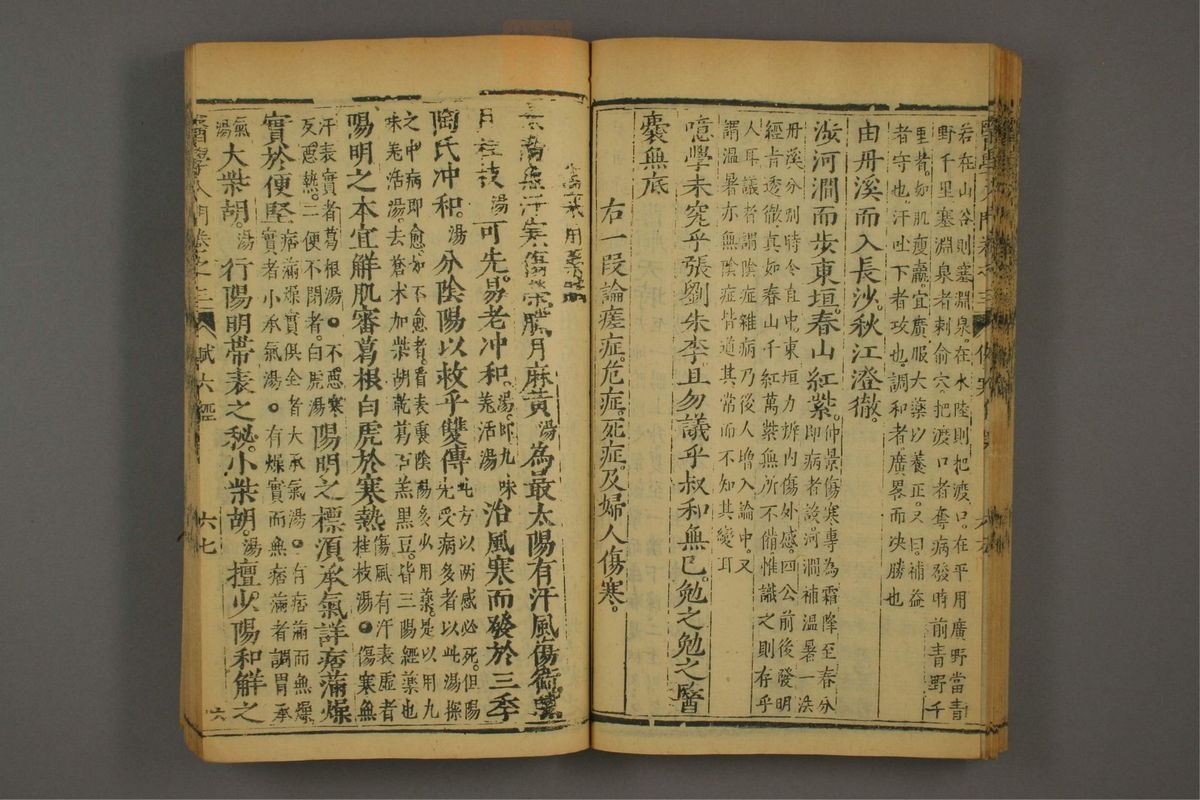 若在山谷則塞淵泉在水陸則把渡口在平用廣野當青
野千里塞淵泉者刺俞穴把渡口者奪病發時前青野千
里者如肌瘦羸宜廣服大藥以養正又曰補益
者守也汗吐下者攻也調和者廣畧而决勝也
由丹溪而入長沙秋江澄徹
泝河澗而步東垣春山紅紫
仲景傷寒專為霜降至春分
即病者設河澗補溫暑一法
丹溪分別時令直屯東垣力辨內傷外感四公前後發明
經肯透徹真如春山千紅萬紫無所不備惟識之則存乎
人耳議者謂陰症雜病乃後人增入論中又
謂溫暑亦無陰症皆道其常而不知其變耳
噫學未究乎張劉朱李且勿議乎叔和無已勉之勉之醫
囊無底
右一段論瘥症危症死症及婦人傷寒
傷寒用藥賦
汗寒傷榮臘月麻黃湯為最太陽有汗風傷衛
月桂枝湯可先易老冲和湯即九味羗活湯治風寒而發於三季
陶氏冲和湯分陰陽以救乎雙傳
此方以兩感必死但陽
先受病多者以此湯探
之中病即愈如不愈者看表裏陰陽多少用藥是以用九
味羗活湯去蒼术加柴胡乾葛石羔黑豆皆三陽經藥也
陽明之本宜解肌審葛根白虎於寒熱
傷風有汗表虛者
桂枝湯●傷寒無
汗表實者葛根湯●不惡寒
反惡熱二便不閉者白虎湯
陽明之標須承氣詳痞滿燥
實於便堅
痞滿燥實俱全者大承氣湯●有痞滿而無燥
實者小承氣湯●有燥實而無痞滿者調胃承
氣湯
大柴胡湯行陽明帶表之秘小柴胡湯擅少陽和解之
醫學入門卷之三 賦六經 六七
六